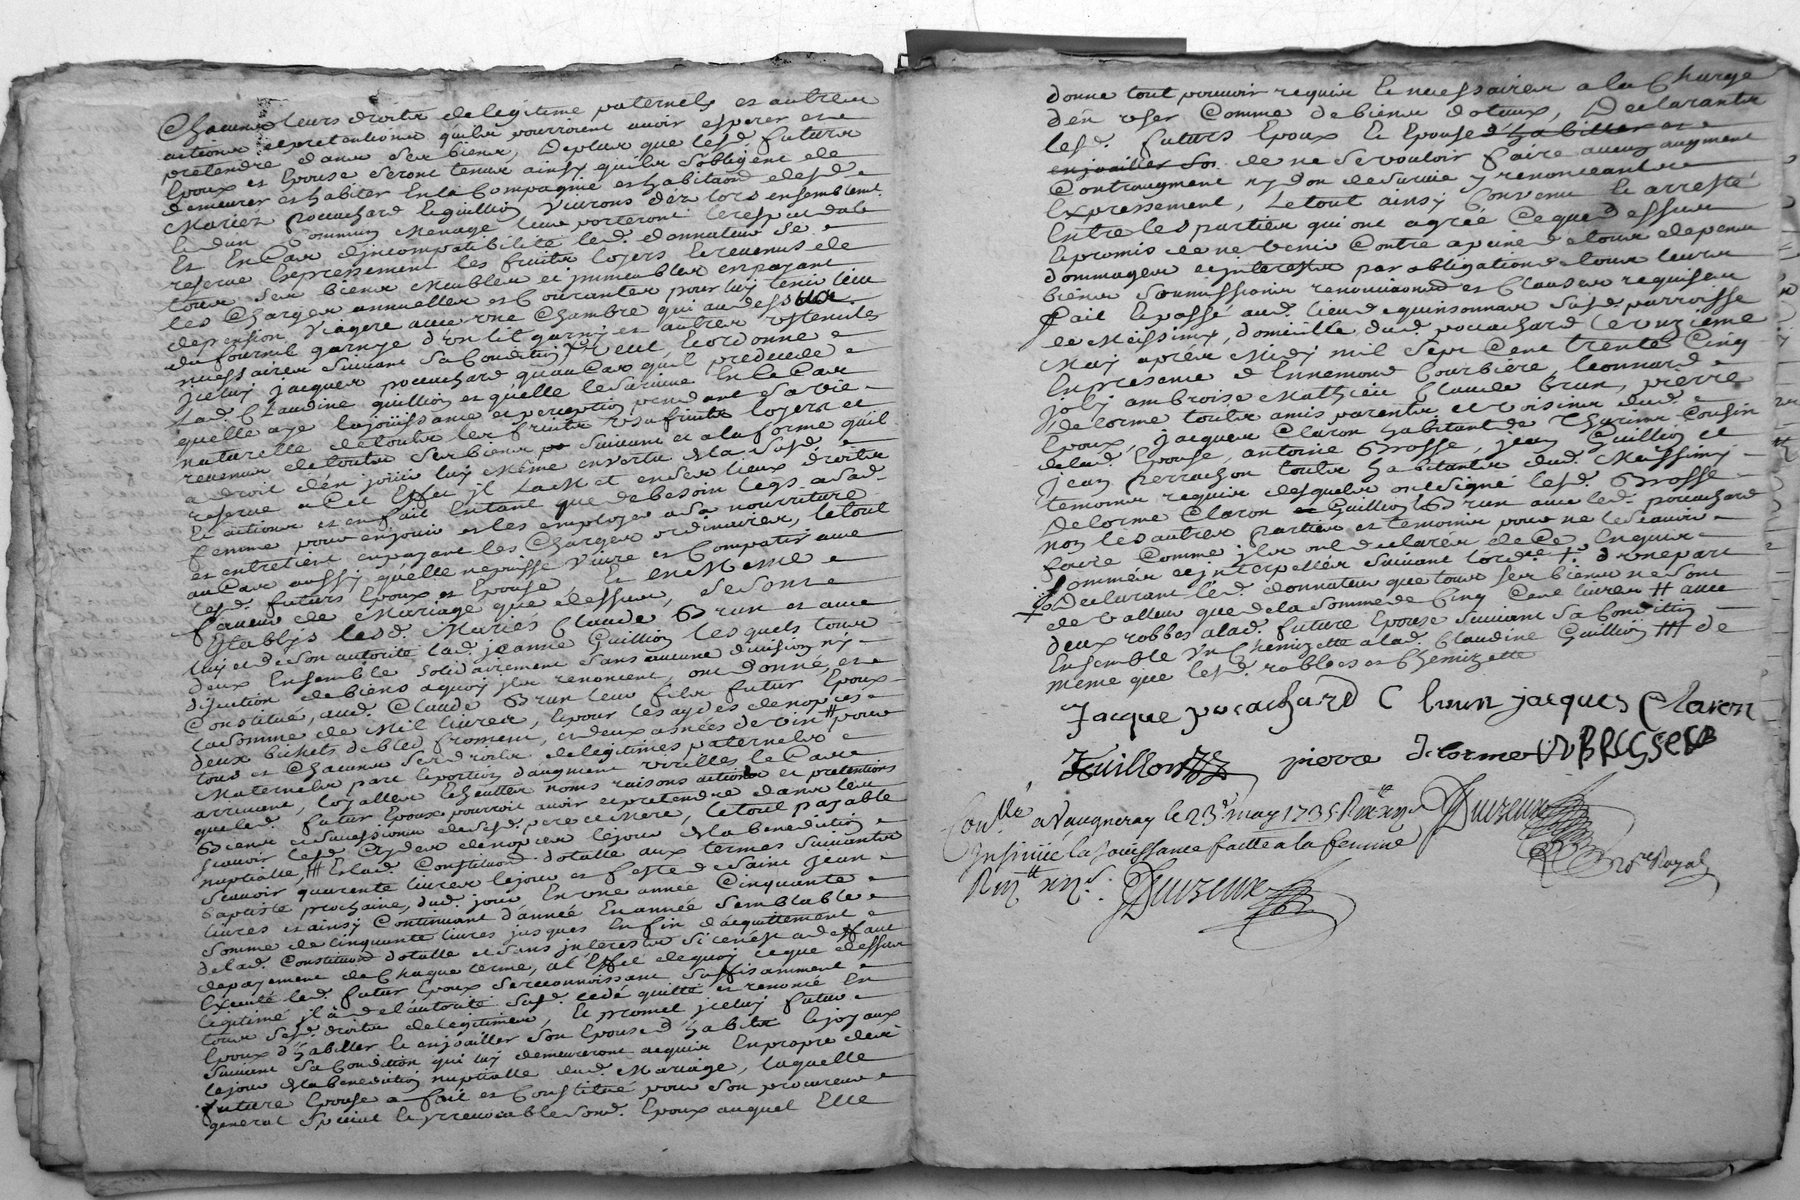 Chacuns leurs droitz de legitime paternels et autres
actions et pretentions qu'ils pourroient avoir esperer et
pretendre dans ses biens, Deplus que lesd. futurs
Epoux et Epouse seront tenus ainsy quils s'obligent de
demeurer et habiter En la Compagnie et habitaon desd.
Mariés pocachard et guillion, vivrons dez lors ensemblement
Et dun Commun Menage leur porteront le respect du
Et En Cas d'incompatibilité led. donnateur se
reserve Expressement les fruits loyers et revenus de
tous ses biens meubles et immeubles en payant
les Charges annuelles et Courantes pour luy tenir lieu
de pension viagere avec une Chambre qui au dessus
du fournil garnye d'un lit garny et autres ustenciles
necessaires suivant sa Condition, veut Et ordonne
iceluy jacques pocachard qu'au Cas qu'il predecede
lad. Claudine guillion et qu'elle le survive En Ce Cas
quelle aye la jouissance et perception pendant sa vie
naturelle de toutes les fruits loyers et
revenus de toutes ses biens suivant et a la forme qu'il
a droit d'en jouir luy même en vertu de la susd.
reserve a Cet Effet il la Met en ses lieux droitz
Et actions et en fait Entant que de besoin legs a sad.
femme pour en jouir et les employer a sa nourriture
et entretient en payant les Charges ordinaires, le tout
au Cas aussy qu'elle ne puisse Vivre et Compatir avec
lesd. futurs Epoux et Epouse, Et en Meme
faveur de Mariage que dessus, se sont
Etablys lesd. Mariés Claude Brun et avec
luy et de son autorité lad. jeanne Guillion lesquels tous
deux Ensemble solidairement sans aucune division ny
discution de biens a quoy ils renoncent, ont donné et
Constitué, aud. Claude Brun leur fils futur Epoux
la somme de Mil livres, Et pour les aydes de nopces
deux bichets de bled froment, et deux asnées de vin # pour
tous et Chacuns ses droits de legitimes paternels
Maternels part et portion d'augment viriles le Cas
arrivant, loyalles Echuttes noms raisons actions et pretentions
que led. futur Epoux pourroit avoir et pretendre dans les
Biens et successions de sesd. pere et Mere, le tout payable
sçavoir lesd. aydes de nopces le jour de la benediction
nuptialle, ### Et lad. Constituon dotalle aux termes suivants
scavoir quarante livres le jour et feste de saint Jean
baptiste prochaine, dud. jour En une année Cinquante
livres et ainsy Continuant d'année En année semblable
somme de Cinquante livres jusques En fin d'acquittement
de lad. Constituon dotalle et sans interestz si ce n'est a deffaut
de payement de Chaque terme, al Effet de quoy ce que dessus
Executé led. futur Epoux se reconnoissant suffisamment
legitimé il a de l'autorité susd. cedé quitté et renoncé En
tous sesd. droits de legitimes, Et promet iceluy futur
Epoux d'habiller et enjoailler son Epouse d'habits Et joyaux
suivant sa Condition qui luy demeureront acquis En propre dez
le jour de la benediction nuptialle dud. Mariage, laquelle
future Epouse a fait et Constitué pour son procureur
general special et irrevocable sond. Epoux auquel Elle
donne tout pouvoir requis Et necessaires a la Charge
d'en user Comme de biens dotaux, Declarants
lesd. futurs Epoux Et Epouse d'habiller et
enjoailler son de ne se vouloir faire aucun augment
Contraugment ny don de survie y renonceants
Expressement, Le tout ainsy Convenu Et arresté
Entre les parties qui ont agréé Ce que dessus
Et promis de ne venir Contre a peine de tous depens
dommages et interests par obligation de tous leurs
biens soumissions renonciaons et Clauses requises
fait Et passé aud. lieu de quinsonnas susd. parroisse
de Meissimy, domicille dud. pocachard le onzieme
May apres Midy mil sept Cent trente Cinq
En presence d Ennemond Corbiere, leonnard
joly ambroise Mathieu Claude Brun, pierre
delorme toutz amis parents et voisins dud.
Epoux, jacques Claron habitant de Thurins Cousin
de lad. Epouse, antoine Brosse, jean Guillion et
jean perrachon toutz habitants dud. Messimy
temoins requis desquels ont signé lesd. Brosse
Delorme Claron Guillion Brun avec led. pocachard
non les autres parties et temoins pour ne le sçavoir
faire Comme ils ont declarés de Ce Enquis
sommés et interpellés suivant lordre. + d'une part
+ Declarant led. donnateur que tous ses biens ne sont
de valleur que de la somme de Cinq Cent livres # avec
deux robbes a lad. future Epouse suivant sa Condition
Ensemble Un Chemizette a lad. Claudine Guillion ### de
meme que lesd. robbes et Chemizette
Jacque pocachard C brun jacques Claron
J Guillon pierre delorme A BROSSE
Con.lle a Vaugneray le 23e may 1735 R
Duvzeux
Insinué la Jouissance faitte a la femme
Duvzeux
no.re Royal